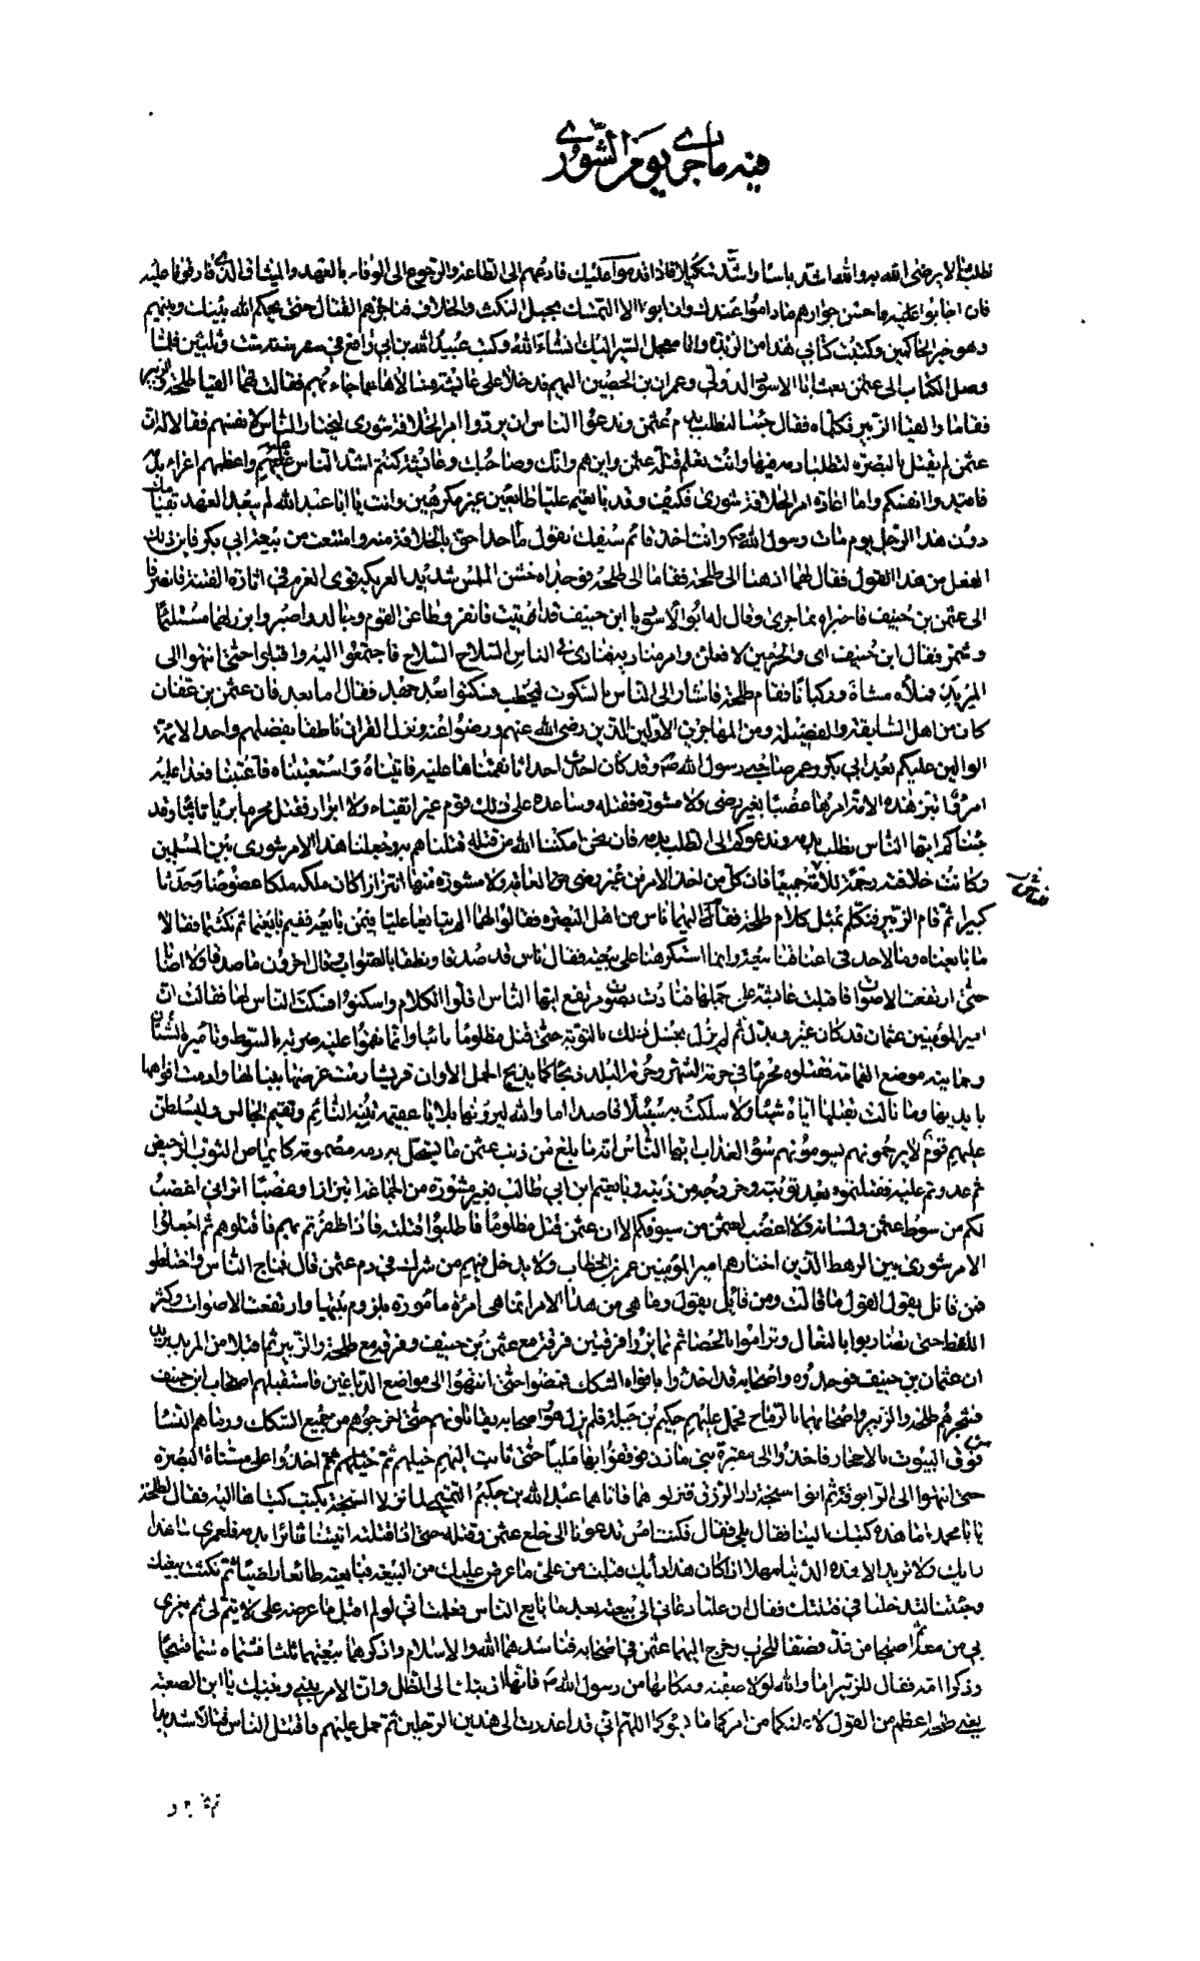 فيه ماجرى يوم الشورى
تطلبت الا برضى الله به والله اشد باسا واشد تنكيلا فاذا قدموا عليك فادعهم الى الطاعة والرجوع الى الوفاء بالعهد والميثاق الذي فارقونا عليه
فان اجابوا فاحسن جوارهم ماداموا عندك وان ابوا الا التمسك بحبل النكث والخلاف فناجزهم القتال حتى يحكم الله بينك وبينهم
وهو خير الحاكمين وكتبت كتابي هذا من الربذة وانا معجل السير اليك انشاء الله وكتب عبيد الله بن ابي رافع في سنة ست وثلثين فلما
وصل الكتاب الى عثمن بعث ابا الاسود الدولي وعمران بن الحصين اليهم فدخلا على عايشة فسالاها عما جاء بهم فقالت لهما القيا طلحة والزبير
فقاما والقيا الزبير فكلماه فقال جئنا لنطلب بدم عثمن وندعوا الناس ان يردوا امر الخلافة شورى ليختار الناس لانفسهم فقالا له ان
عثمن لم يقتل بالبصرة لتطلبا دمه فيها وانت تعلم قتلة عثمن واين هم وانك وصاحبك وعايشة كنتم اشد الناس عليه واعظمهم اغراء بدمه
فاقيدوا انفسكم واما اعادة امر الخلافة شورى فكيف وقد بايعتم عليا طايعين غير مكرهين وانت يا ابا عبد الله لم يبعد العهد بقيامك
دون هذا الرجل يوم مات رسول الله وانت اخذ قائم سيفك تقول ما احد احق بالخلافة منه وامتنعت من بيعة ابي بكر فاين ذلك
الفعل من هذا القول فقال لهما اذهبا الى طلحة فقاما الى طلحة فوجداه خشن الملمس شديد العريكة قوى العزم في اثارة الفتنة فانصرفا
الى عثمن بن حنيف فاخبراه بما جرى وقال له ابو الاسود يا ابن حنيف قد اتيت فانفر وطاعن القوم وجالد واصبر وابرز لهما مستلئما
وشمر فقال ابن حنيف اي والحرمين لافعلن وامر مناديه فنادى في الناس السلاح السلاح فاجتمعوا اليه واقبلوا حتى انتهوا الى
المربد فملأه مشاة وركبانا فقام طلحة فاشار الى الناس بالسكوت ليخطب فسكتوا بعد جهد فقال اما بعد فان عثمن بن عفان
كان من اهل السابقة والفضيلة ومن المهاجرين الاولين الذين رضى الله عنهم ورضوا عنه ونزل القران ناطقا بفضلهم واحد الائمة
الوالين عليكم بعد ابي بكر وعمر صاحبي رسول الله وقد كان احدث احداثا نقمناها عليه فاتيناه واستعتبناه فاعتبنا فعدا عليه
امرؤ ابتز هذه الامة امرها غصبا بغير رضى ولا مشورة فقتله وساعده على ذلك قوم غير اتقياء ولا ابرار فقتل محرما بريا تائبا وقد
جئناكم ايها الناس نطلب بدمه وندعوكم الى الطلب بدمه فان نحن امكننا الله من قتلته قتلناهم به وجعلنا هذا الامر شورى بين المسلمين
وكانت خلافة رحمة للامة جميعا فان كل من اخذ الامر من غير رضى من العامة ولا مشورة منها ابتزازا كان ملكه ملكا عضوضا وحدثا
كبيرا ثم قام الزبير فتكلم بمثل كلام طلحة فقام اليهما ناس من اهل البصرة فقالوا لهما الم تبايعا عليا فيمن بايعه ففيم بايعتما ثم نكثتما فقالا
ما بايعناه وما لاحد في اعناقنا بيعة وانما استكرهنا على بيعته فقال ناس قد صدقا ونطقا بالصواب وقال اخرون ما صدقا ولا اصابا
حتى ارتفعت الاصوات فاقبلت عايشة على جملها فنادت بصوت مرتفع ايها الناس اقلوا الكلام واسكتوا فسكت الناس لها فقالت ان
امير المؤمنين عثمان قد كان غير وبدل ثم لم يزل يغسل ذلك بالتوبة حتى قتل مظلوما تائبا وانما نقموا عليه ضربه بالسوط وتاميره الشبان
وحمايته موضع الغمامة فقتلوه محرما في حرمة الشهر وحرمة البلد ذبحا كما يذبح الجمل الا وان قريشا رمت غرضها بنبالها وادمت افواهها
بايديها وما نالت بقتلها اياه شيئا ولا سلكت به سبيلا قاصدا اما والله ليرونها بلايا عقيمة تنبه النائم وتقيم الجالس وليسلطن
عليهم قوم لا يرحمونهم يسومونهم سوء العذاب ايها الناس انه ما بلغ من ذنب عثمن ما يستحل به دمه مصتموه كما يماص الثوب الرحيض
ثم عدوتم عليه فقتلتموه بعد توبته وخروجه من ذنبه وبايعتم ابن ابي طالب بغير مشورة من الجماعة ابتزازا وغصبا اتراني اغضب
لكم من سوط عثمن ولسانه ولا اغضب لعثمن من سيوفكم الا ان عثمن قتل مظلوما فاطلبوا قتلته فاذا ظفرتم بهم فاقتلوهم ثم اجعلوا
الامر شورى بين الرهط الذين اختارهم امير المؤمنين عمر بن الخطاب ولا يدخل فيهم من شرك في دم عثمن قال فماج الناس واختلطوا
فمن قائل يقول القول ما قالت ومن قائل يقول وما هي من هذا الامر انما هي امرأة مامورة بلزوم بيتها وارتفعت الاصوات وكثر
اللغط حتى تضاربوا بالنعال وتراموا بالحصا ثم تمايزوا فرقتين فرقة مع عثمن بن حنيف وفرقة مع طلحة والزبير ثم اقبلا من المربد يريدان
عثمان بن حنيف فوجدوه واصحابه قد اخذوا بافواه السكك فمضوا حتى انتهوا الى مواضع الدباغين فاستقبلهم اصحاب ابن حنيف
فشجرهم طلحة والزبير واصحابهما بالرماح فحمل عليهم حكيم بن جبلة فلم يزل هو واصحابه يقاتلونهم حتى اخرجوهم من جميع السكك ورماهم النساء
من فوق البيوت بالاحجار فاخذوا الى مقبرة بني مازن فوقفوا بها مليا حتى ثابت اليهم خيلهم ثم اخذوا على مسناة البصرة
حتى انتهوا الى الرابوقة ثم اتوا سبخة دار الرزق فنزلوها فاتاهما عبد الله بن حكيم التميمي لما نزلا السبخة بكتب كتباها اليه فقال لطلحة
يا ابا محمد اما هذه كتبك الينا فقال بلى فقال فكنت امس تدعونا الى خلع عثمن وقتله حتى اذا قتلته اتيتنا ثائرا بدمه فلعمري ما هذا
رايك ولا تريد الا هذه الدنيا مهلا اذا كان هذا رايك قبلت من على ما عرض عليك من البيعة فبايعته طائعا راضيا ثم نكثت بيعتك
وجئتنا لتدخلنا في فتنتك فقال ان عليا دعاني الى بيعته بعد ما بايع الناس فعلمت اني لو لم اقبل ما عرضه على لا يتم لى ثم يغرى
بي من معه ثم اصبحا من غد فصفا للحرب وخرج اليهما عثمن في اصحابه فناشدهما الله والاسلام واذكرهما بيعتهما ثلثا فشتماه شتما قبيحا
وذكرا امه فقال للزبير اما والله لولا صفية ومكانها من رسول الله فانها ادنتك الى الظل وان الامر بيني وبينك يا ابن الصعبة
يعنى طلحة اعظم من القول لاعلمتكما من امركما ما يسوءكما اللهم اني قد اعذرت الى هذين الرجلين ثم حمل عليهم واقتتل الناس قتالا شديدا